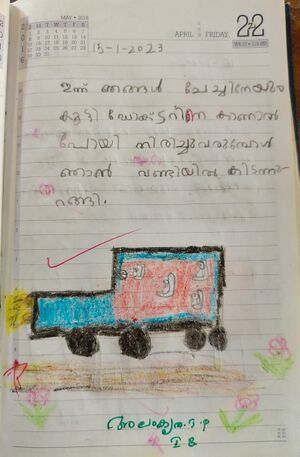 MAY • 2016
2016
APRIL FRIDAY 22
15-1-2023
ഇന്ന് ഞങ്ങൾ ചേച്ചിനേയും
കൂട്ടി ഡോക്ടറിനെ കാണാൻ
പോയി തിരിച്ചുവരുമ്പോൾ
ഞാൻ വണ്ടിയിൽ കിടന്നു
റങ്ങി.
അലംകൃത. ടി. പി
I B